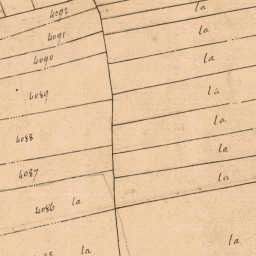 4092 la
4091 la
4090 la
4089 la
4088 la
4087 la
4086 la la
la la